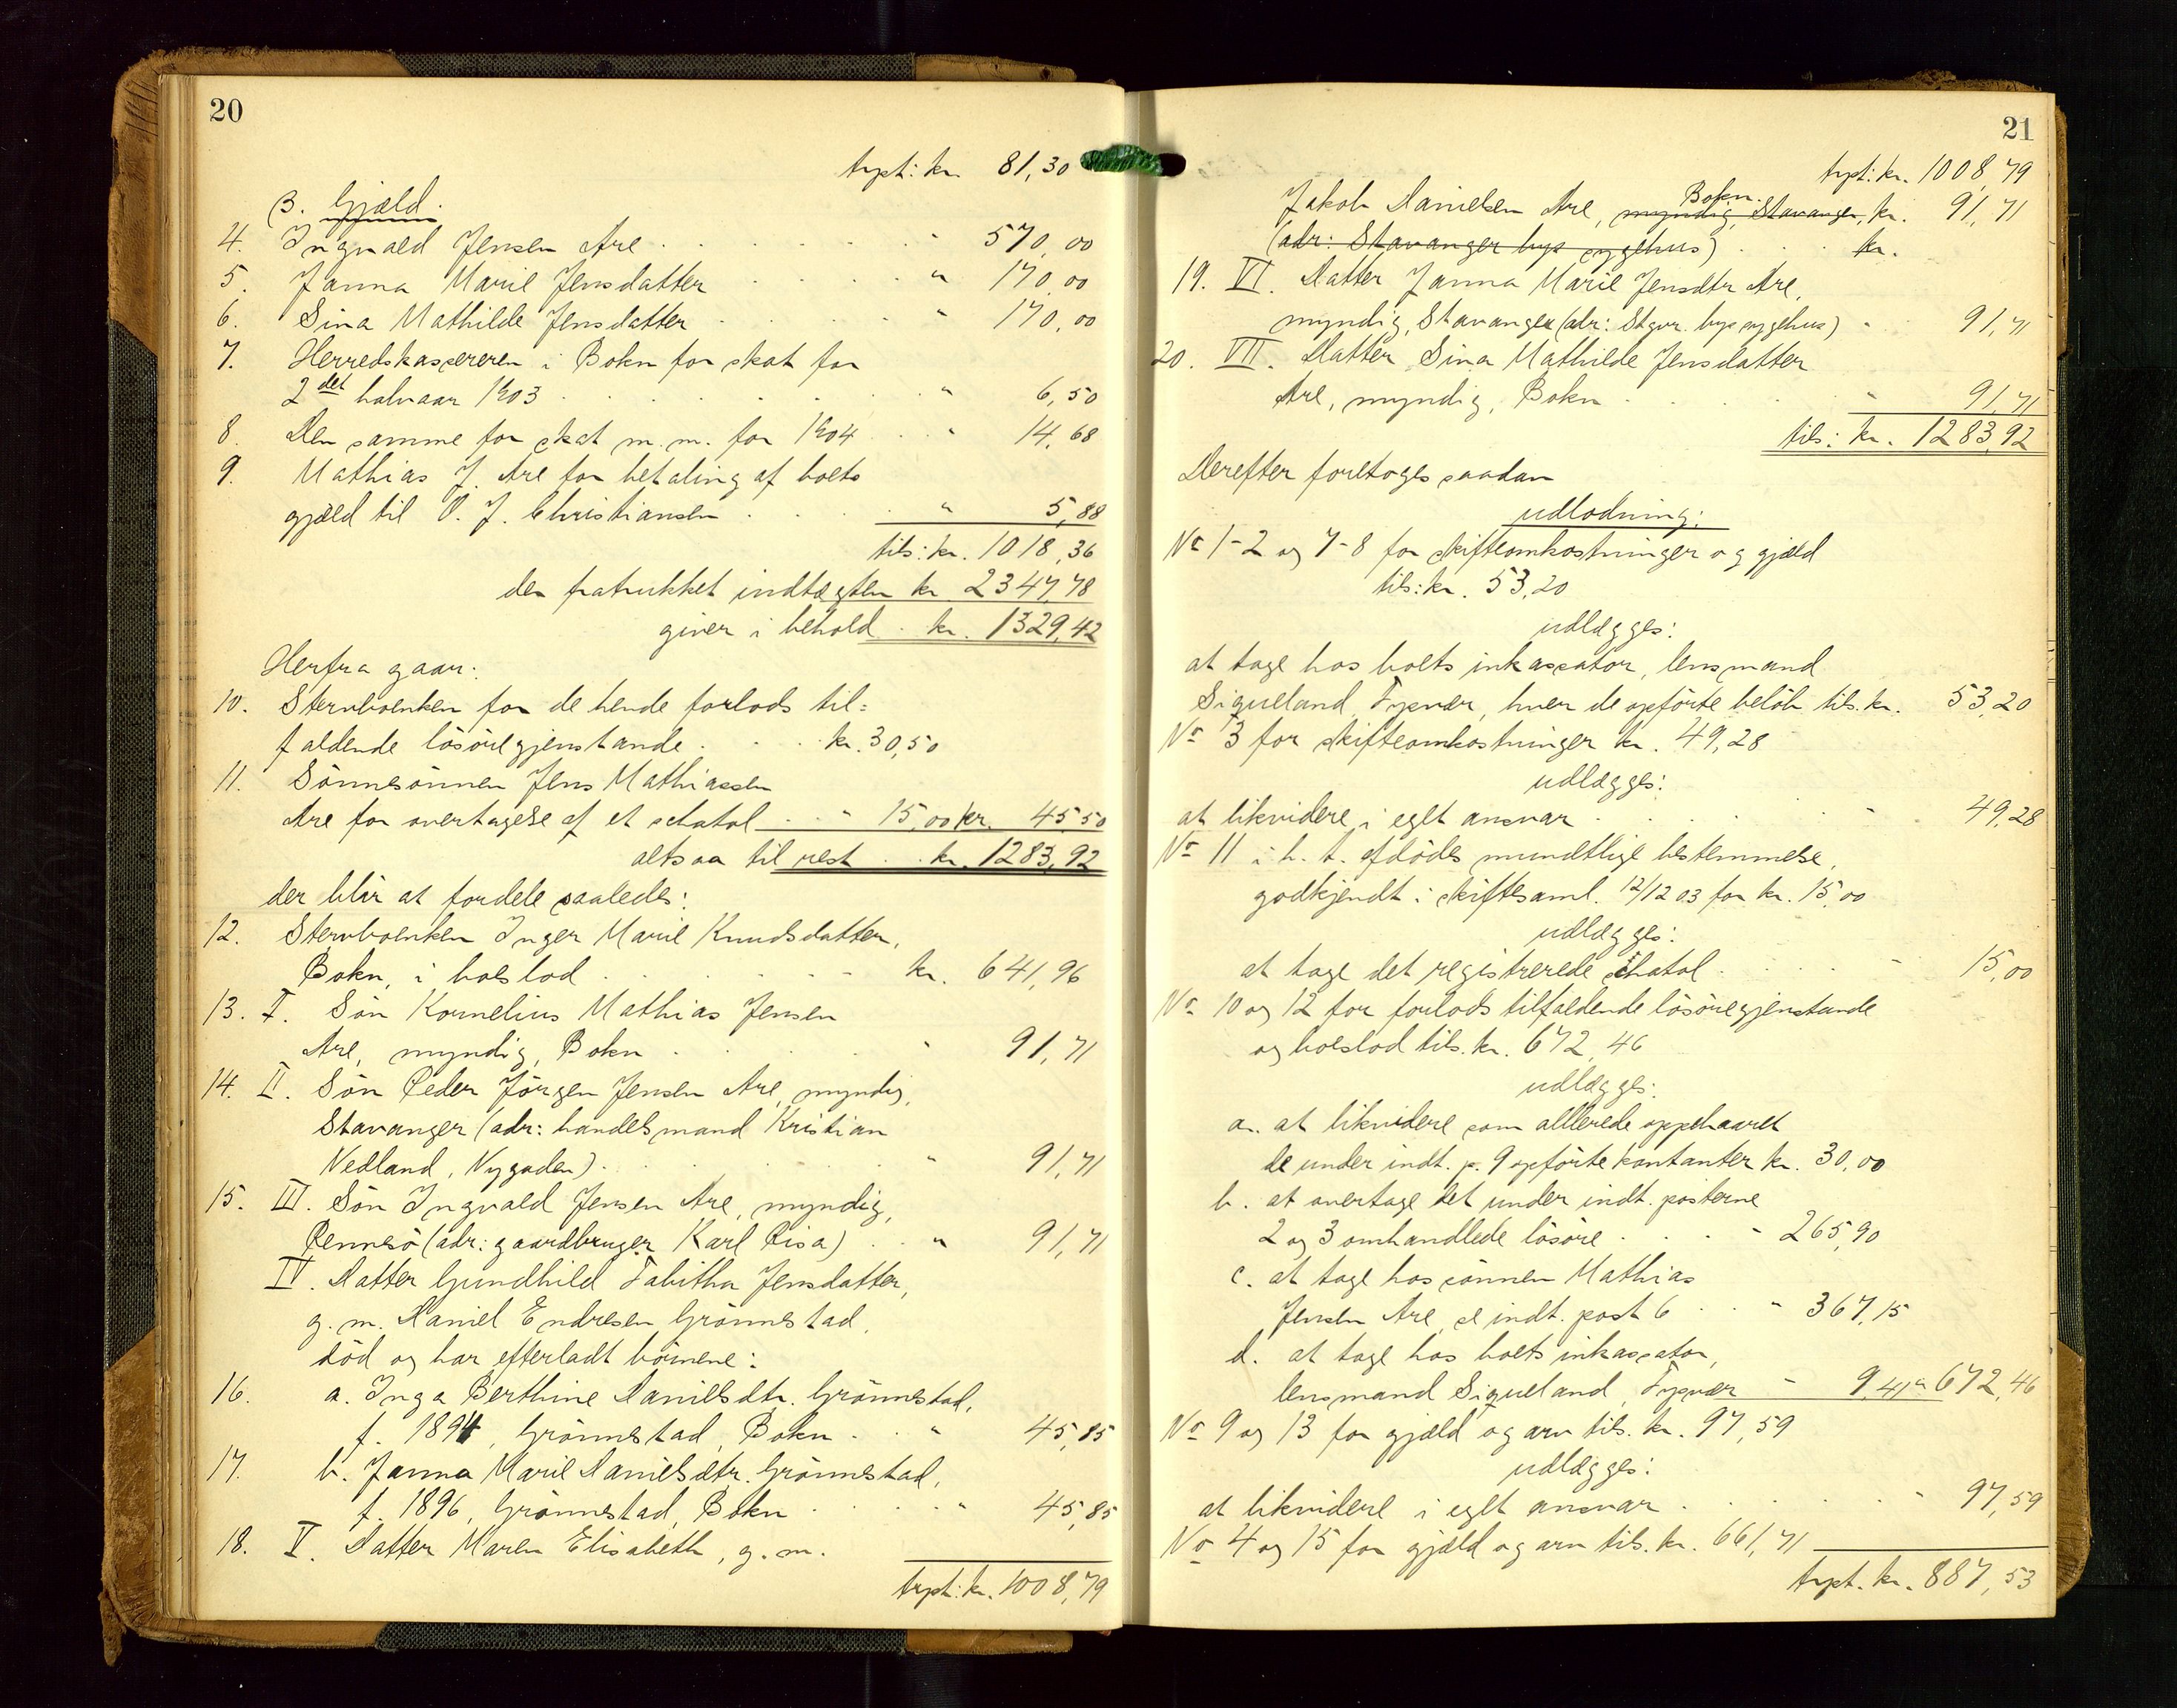 20
trpt: kr. 81,30
B. Gjæld.
4. Ingvald Jensen Are . . . " 570,00
5. Janna Marie Jensdatter . . . " 170,00
6. Sina Mathilde Jensdatter . . . " 170,00
7. Herredskassereren i Bokn for skat for
2det halvaar 1903 . . . " 6,50
8. Den samme for skat m. m. for 1904 . . " 14,68
9. Mathias J. Are for betaling af boets
gjæld til O. J. Christiansen . . . " 5,88
tils: kr. 1018,36
der fratrukket indtægten kr 2347,78
giver i behold . kr. 1329,42
Herfra gaar:
10. Stervboenken for de hende forlods til=
faldende lösöregjenstande . . . kr. 30,50
11. Sönnesönnen Jens Mathiassen
Are for overtagelse af et schatol . . " 15,00 kr. 45,50
altsaa til rest . . kr. 1283,92
der blir at fordele saaledes:
12. Stervboenken Inger Marie Knudsdatter,
Bokn, i boslod . . . kr. 641,96
13. I. Sön Kornelius Mathias Jensen
Are, myndig, Bokn . . . " 91,71
14. II. Sön Peder Jörgen Jensen Are, myndig,
Stavanger (adr: handelsmand Kristian
Nedland, Nygaden) . . . " 91,71
15. III. Sön Ingvald Jensen Are, myndig,
Rennesö (adr: gaardbruger Karl Risa) . . " 91,71
IV. Datter Gundhild Tabitha Jensdatter,
g. m. Daniel Endresen Grönnestad,
död og har efterladt börnene:
16. a. Inga Berthine Danielsdtr. Grönnestad,
f. 1894, Grönnestad, Bokn . . " 45,85
17. b. Janna Marie Danielsdtr. Grönnestad,
f. 1896, Grönnestad, Bokn . . . " 45,85
18. V. Datter Maren Elisabeth, g. m.
trpt: kr. 1008,79
21
trpt: kr. 1008,79
Bokn.
Jakob Danielsen Are, myndig, Stavanger, kr. 91,71
(adr: Stavanger bys sygehus) . . . kr.
19. VI. Datter Janna Marie Jensdtr Are,
myndig, Stavanger (adr: Stavr. bys sygehus) " 91,71
20. VII. Datter Sina Mathilde Jensdatter
Are, myndig, Bokn . . . " 91,71
tils: kr. 1283,92
Derefter foretoges saadan
udlodning:
No 1-2 og 7-8 for skifteomkostninger og gjæld
tils: kr. 53,20
udlægges:
at tage hos boets inkassator, lensmand
Sigueland, Tysvær, hver de opförte belöb tils. kr. 53,20
No 3 for skifteomkostninger kr. 49,28
udlægges:
at likvidere i eget ansvar . . . " 49,28
No 11 i h. t. afdödes mundtlige bestemmelse,
godkjendt i skiftesaml. 12/12 03 for kr. 15,00
udlægges:
at tage det registrerede schatol . . . " 15,00
No 10 og 12 for forlods tilfaldende lösöregjenstande
og boslod tils. kr. 672,46
udlægges:
a. at likvidere som allerede oppebaaret
de under indt. p. 9 opförte kontanter kr. 30,00
b. at overtage det under indt. posterne
2 og 3 omhandlede lösöre . . . " 265,90
c. at tage hos sönnen Mathias
Jensen Are, se indt. post 6 . . " 367,15
d. at tage hos boets inkassator,
lensmand Sigueland, Tysvær " 9,41 " 672,46
No 9 og 13 for gjæld og arv tils. kr. 97,59
udlægges:
at likvidere i eget ansvar . . . " 97,59
No 4 og 15 for gjæld og arv tils. kr. 661,71
trpt. kr. 887,53